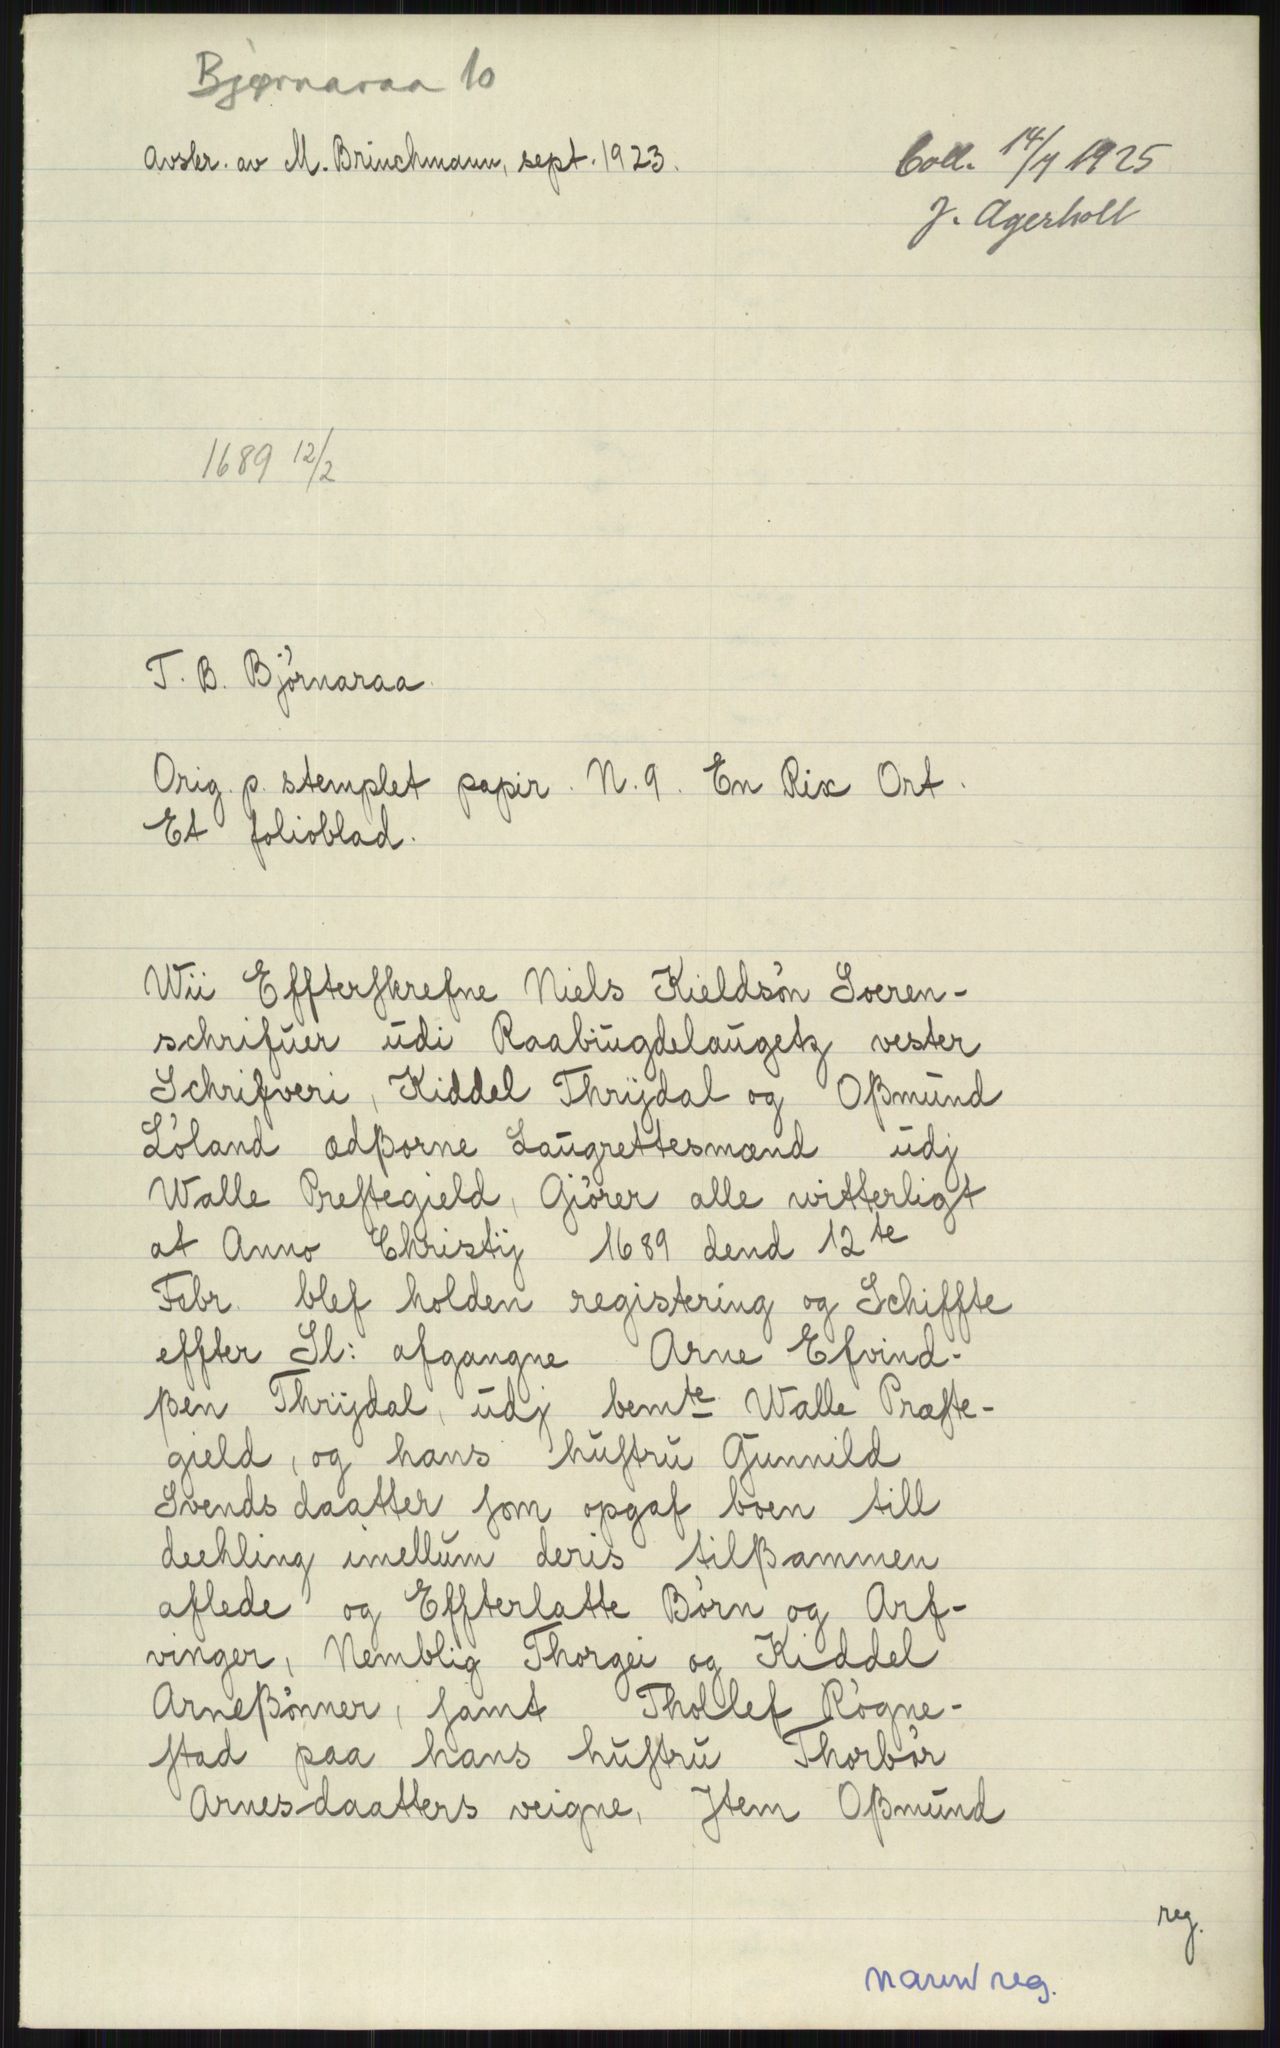 Bjørnaraa 10
Avskr. av M. Brinchmann, sept. 1923.
Coll. 14/7 1925
J. Agerholt
1689 12/2
T. B. Bjørnaraa.
Orig. p. stemplet papir. N. 9. En Rix Ort.
Et folioblad.
Wii Effterskrefne Niels Kieldsøn Soeren-
schrifuer udi Raabiugdelaugetz vester
Schrifveri, Kiddel Thrijdal og Oßmund
Løland ædßorne Laugrettesmænd udj
Walle Prestegield, Giører alle witterligt
at Anno Christij 1689 dend 12te
Febr. blef holden registering og Schiffte
effter Sl: afgangne Arne Efvind-
ßen Thrijdal, udj bemte Walle Præste-
gield, og hans hustru Gunnild
Svends daatter som opgaf boen till
deehling imellum deris tilßammen
aflede og Effterlatte Børn og Arf-
vinger, Nemblig Thorgei og Kiddel
Arneßønner, samt Thollef Røgne-
stad paa hans hustru Thorbør
Arnes daatters veigne, Jtem Oßmund
reg.
navnreg.